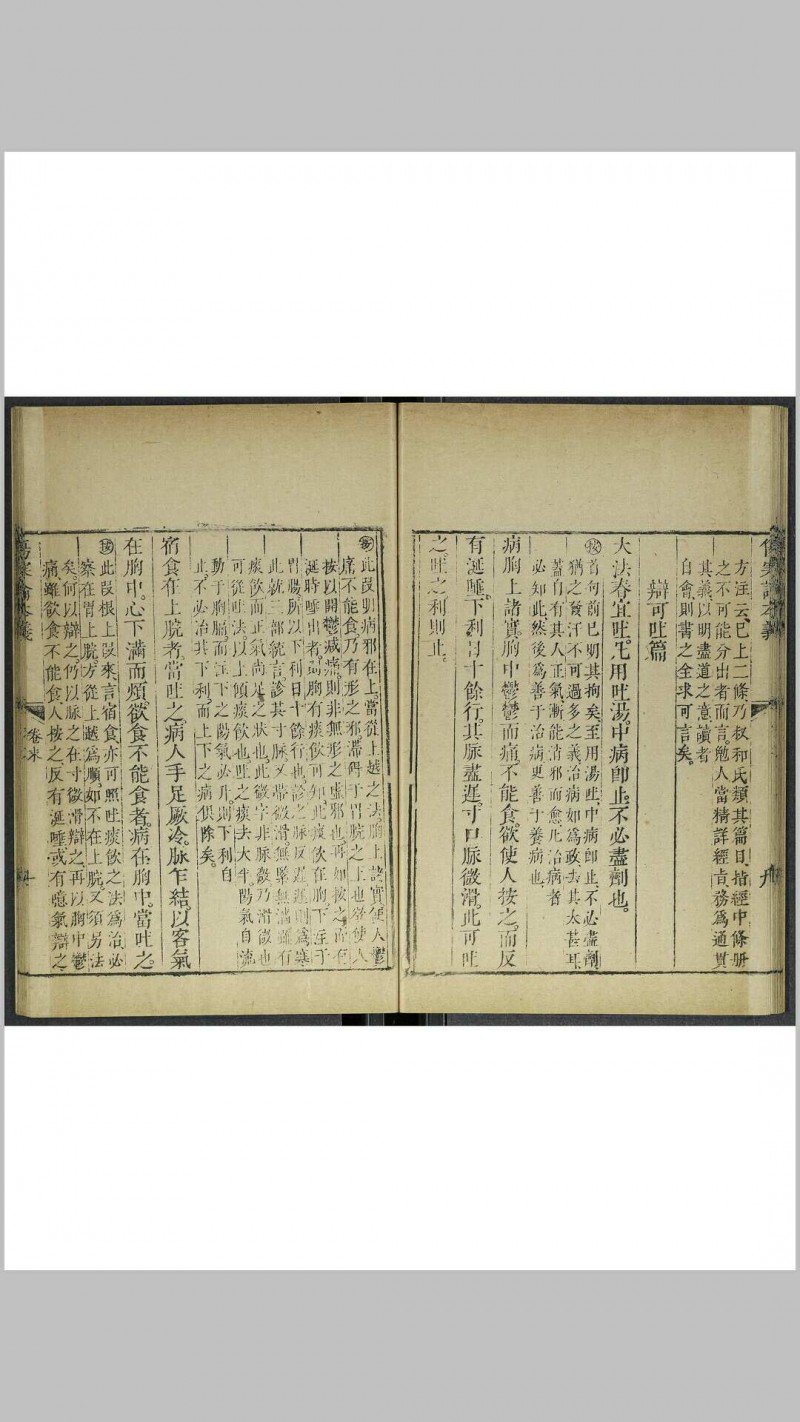 方注云已上二條乃叔和氏類其篇目指經中條冊
之不可能分出者而言勉人當精詳經旨務爲通貫
其義以明盡道之意讀者
自會則書之全求可言矣。
辯可吐篇
大法春宜吐。凡用吐湯。中病卽止。不必盡劑也。
㊙首句前已明其拘矣至用湯吐中病卽止不必盡劑
猶之發汗不可過多之義治病如爲政去其太甚耳
蓋自有其人正氣漸能消邪而愈凡治病者
必知此然後爲善于治病更善于養病也
病胸上諸實。胸中鬱鬱而痛。不能食。欲使人按之。而反
有涎唾。下利日十餘行。其脉盡遲。寸口脉微滑。此可吐
之。吐之利則止。
九
此段明病邪在上。當從上越之法。胸上諸實使人鬱
席不能食乃有形之邪滯碍于胃脘之上也欲使人
按以開鬱減痛。則非無形之虛邪也再如按之而有
涎時唾出者。胸有痰飲可知。此痰飲在胸下注于
胃腸。所以下利日十餘行也。診之脉反遲。遲則爲寒
此就三部統言診其寸脉又帶微滑。無緊無濇。雖有
痰飲而正氣尚足之狀也。此微字非脉微乃滑微也
可從吐法。以上傾痰飲也。吐之痰去大半。陽氣自流
動于胸膈。而注下之陽氣必升。則下利自
止。不必治其下利而上下之病俱除矣。
宿食在上脘者。當吐之。病人手足厥冷。脉乍結。以客氣
在胸中。心下滿而煩。欲食不能食者。病在胸中。當吐之。
㊙此段根上段來。言宿食亦可照吐痰飲之法爲治。必
察在胃上脘。方從上越爲順。如不在上脘。又須另法
矣。何以辯之。仍以脉之在寸微滑辯之。再以胸中鬱
痛雖欲食不能食。人按之反有涎唾。或有噫氣辯之
卷末